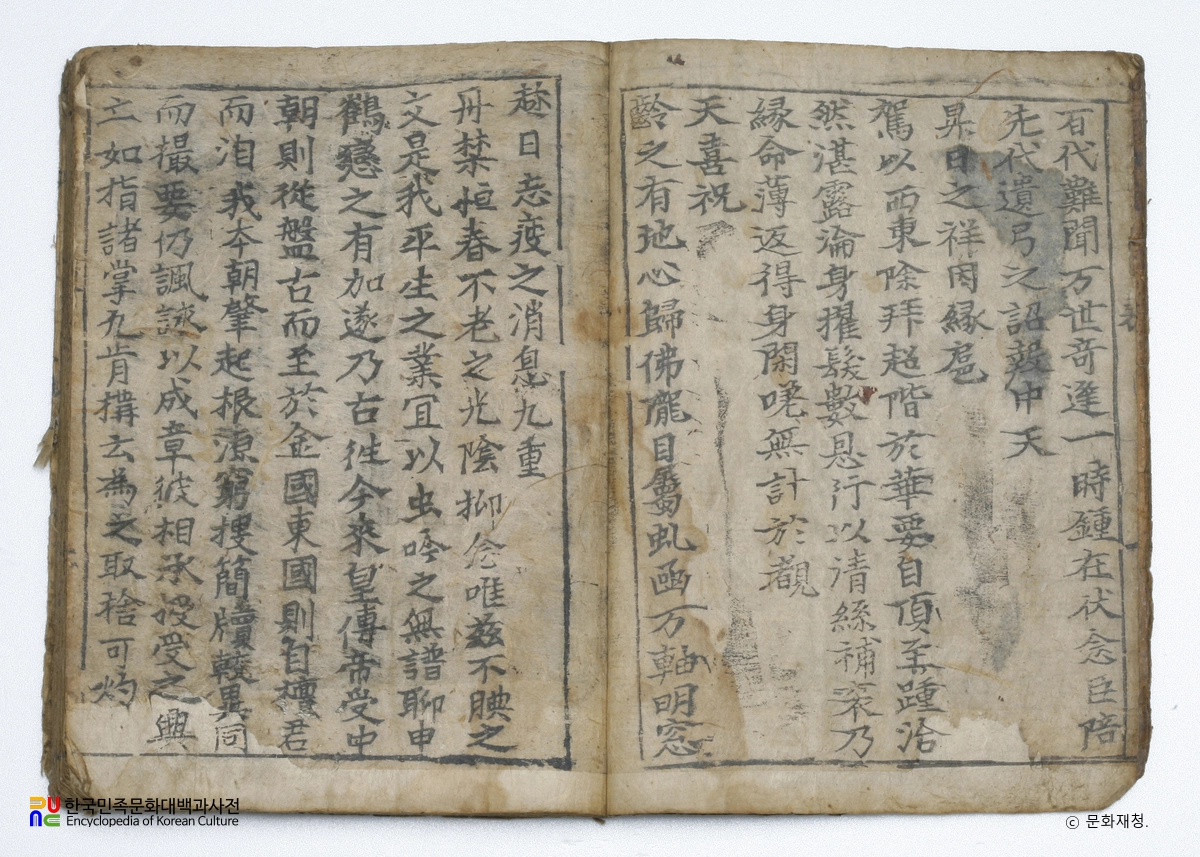 百代難聞万世竒逢一時鍾在伏念臣陪
先代遺弓之詔對中天
昇日之祥因緣扈
駕以西東除拜超階於華要自頂至踵洽
然湛露淪身擢髮數恩行以清絲補衮乃
緣命薄返得身閑嗟無計於觀
天喜祝
齡之有弛心歸佛隴目屬虬函万軸明窓
趂日忘疲之消息九重
丹禁恒春不老之光陰抑念唯兹不腆之
文是我平生之業冝以虫吟之無譜聊申
鶴戀之有加遂乃古徃今來皇傳帝受中
朝則從盤古而至於金國東國則自壇君
而洎我夲朝肇起根源窮搜簡牘較異同
而撮要仍諷詠以成章彼相承授受之興
亡如指諸掌九肯搆云爲之取捨可灼
한국민족문화대백과사전
Encyclopedia of Korean Culture
ⓒ 문화재청.